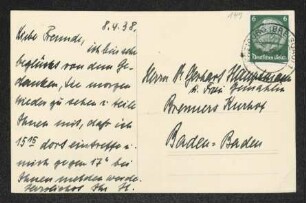 8.4.38.
Liebe Freunde,
ich bin sehr
beglückt von dem Ge-
danken, Sie morgen
wieder zu sehen u. teile
Ihnen mit, daß ich
15 15 dort eintreffe u.
mich gegen 17 h bei
Ihnen melden werde.
Herzlichst Ihr
Herrn Dr. Gerhart Hauptmann
u. Frau Gemahlin
Brenners Kurhof
Baden-Baden
6 6
Deutsches Reich
149